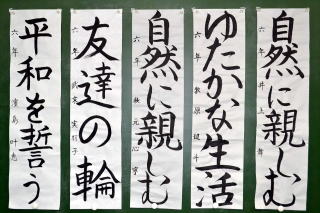 自然に親しむ
六年 井上 舞
ゆたかな生活
六年
自然に親しむ
六年 秋元 心寧
友達の輪
六年
平和を誓う
六年